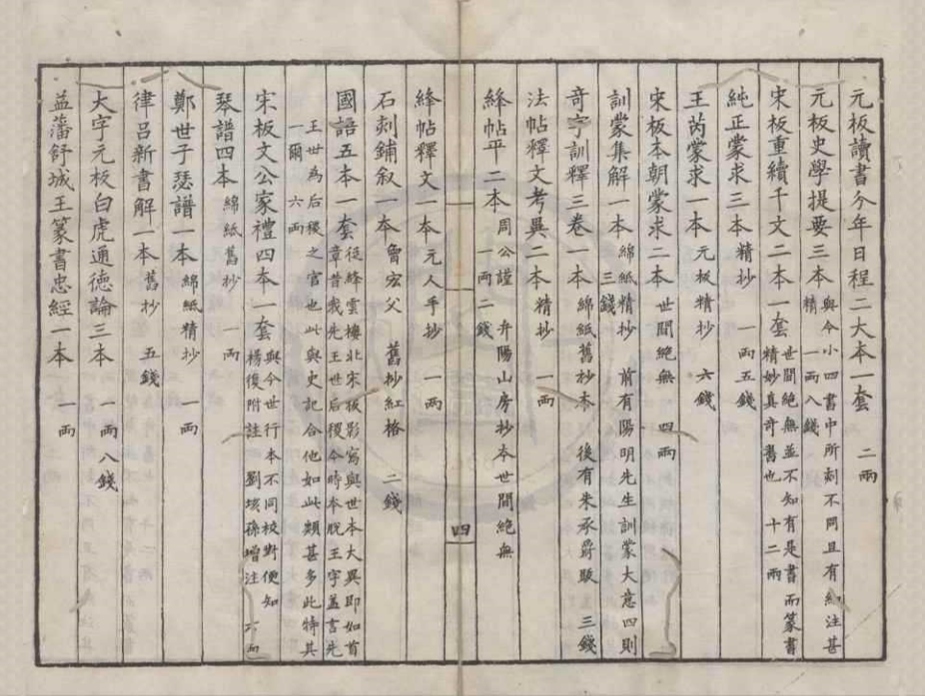 元板讀書分年日程二大本一套 二兩
元板史學提要三本 與今小四書中所刻不同且有細注甚
精 一兩八錢
宋板重續千文二本一套 世間絕無並不知有是書而篆書
精妙真奇書也 十二兩
純正蒙求三本 精抄 一兩五錢
王芮蒙求一本 元板精抄 六錢
宋板本朝蒙求二本 世間絕無 四兩
訓蒙集解一本 綿紙精抄 前有陽明先生訓蒙大意四則
三錢
奇字訓釋三卷一本 綿紙舊抄本 後有朱承爵跋 三錢
法帖釋文考異二本 精抄 一兩
絳帖平二本 周公謹 弁陽山房抄本世間絕無
一兩二錢
四
絳帖釋文一本 元人手抄 一兩
石刻鋪叙一本 曾宏父 舊抄紅格 二錢
國語五本一套 從絳雲樓北宋板影寫與世本大異即如首
章昔我先王世后稷今時本脫王字蓋言先
王世為后稷之官也此與史記合他如此類甚多此特其
一爾 六兩
宋板文公家禮四本一套 與今世行本不同校對便知
楊復附註 劉垓孫增注 六兩
琴譜四本 綿紙舊抄 一兩
鄭世子瑟譜一本 綿紙精抄 一兩
律呂新書解一本 舊抄 五錢
大字元板白虎通德論三本 一兩八錢
益藩舒城王篆書忠經一本 一兩